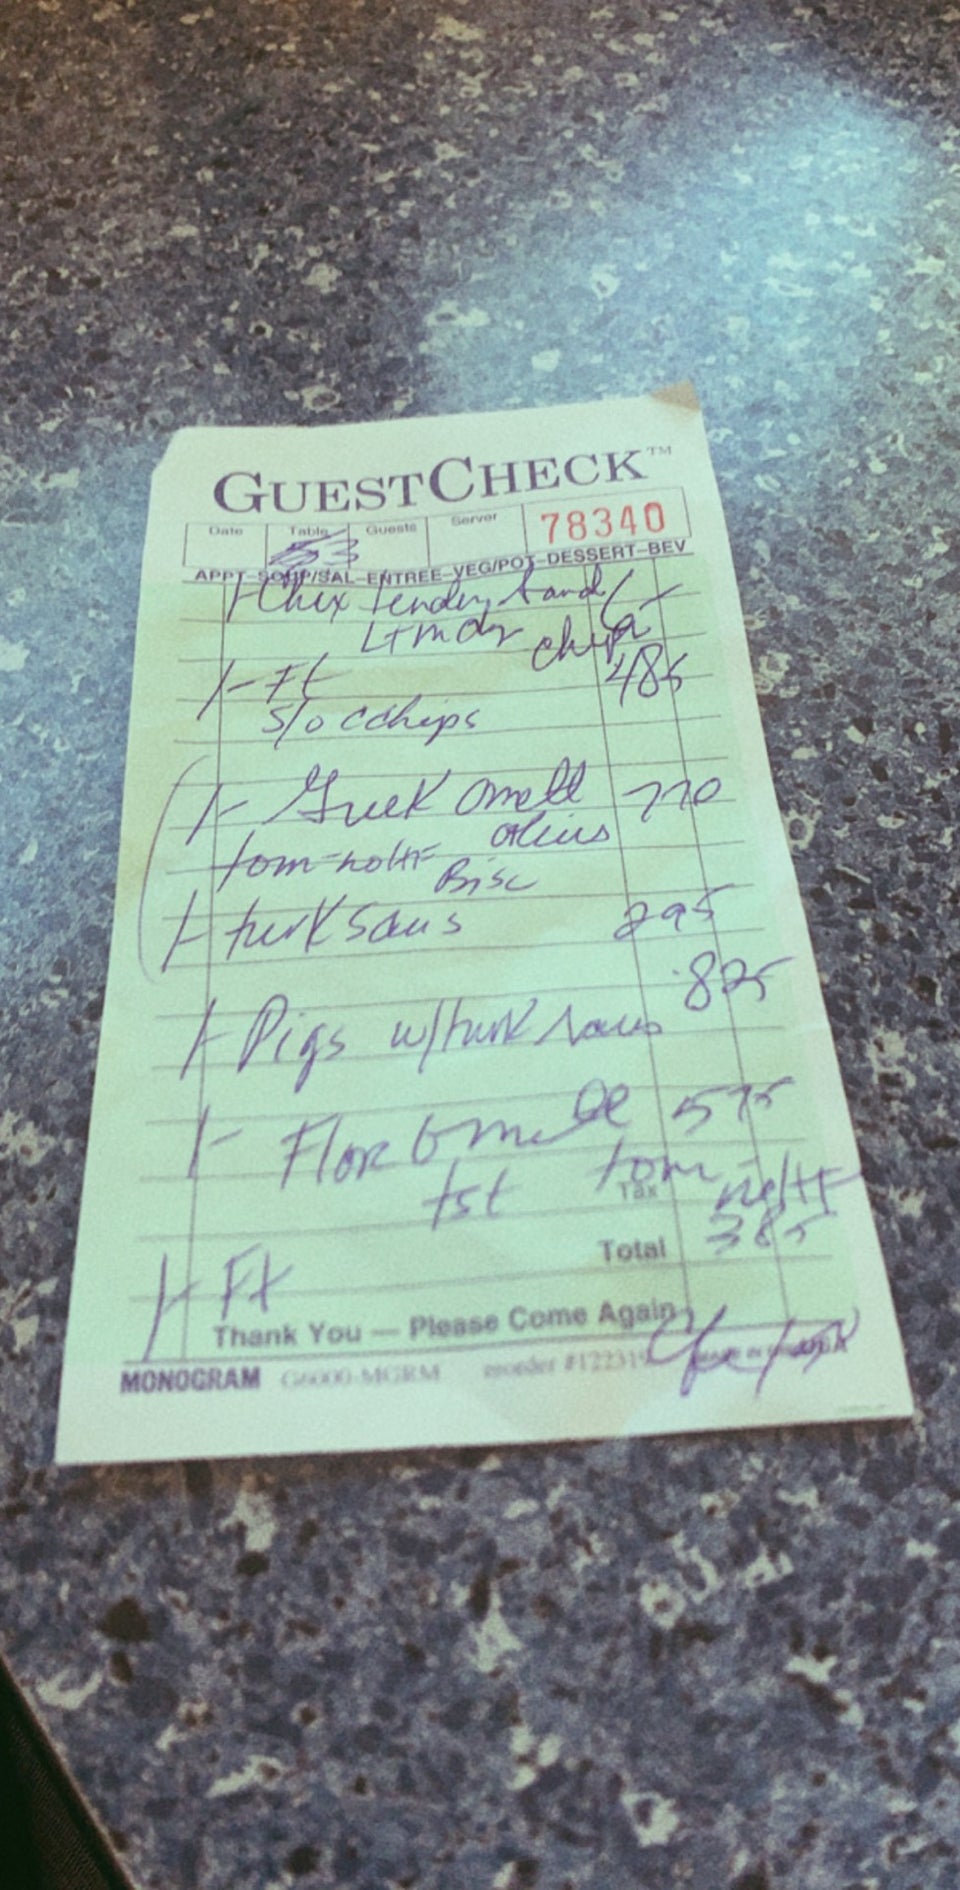 GUESTCHECK™
Date Table Guests Server 78340
53
APPT-SOUP/SAL-ENTREE-VEG/POT-DESSERT-BEV
1- Chix tender Sand
chips
1- Ft 485
s/o cchips
1- Greek omell 770
tom-no HF olives
Bisc
1- turk saus 295
825
1- Pigs w/turk saus
1- Flor omell 575
tst tom no HF
Tax
Total 385
1- Ft
Thank You — Please Come Again
MONOGRAM G6000-MGRM reorder #122319